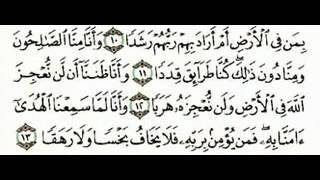 بِمَن فِي ٱلْأَرْضِ أَمْ أَرَادَ بِهِمْ رَبُّهُمْ رَشَدًا ١٠ وَأَنَّا مِنَّا ٱلصَّٰلِحُونَ
وَمِنَّا دُونَ ذَٰلِكَ كُنَّا طَرَآئِقَ قِدَدًا ١١ وَأَنَّا ظَنَنَّآ أَن لَّن نُّعْجِزَ
ٱللَّهَ فِي ٱلْأَرْضِ وَلَن نُّعْجِزَهُۥ هَرَبًا ١٢ وَأَنَّا لَمَّا سَمِعْنَا ٱلْهُدَىٰٓ
ءَامَنَّا بِهِۦ فَمَن يُؤْمِنۢ بِرَبِّهِۦ فَلَا يَخَافُ بَخْسًا وَلَا رَهَقًا ١٣